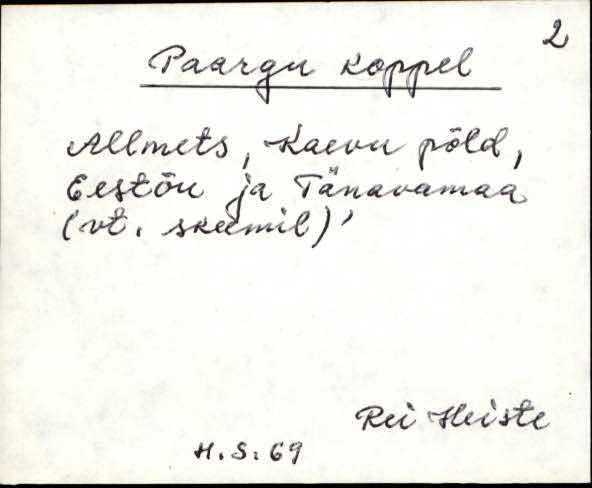 2
Paargu koppel
Allmets, Kaevu põld,
Eestõu ja Tänavamaa
(vt. skeemil)'
Rei Heiste
H.S. 69